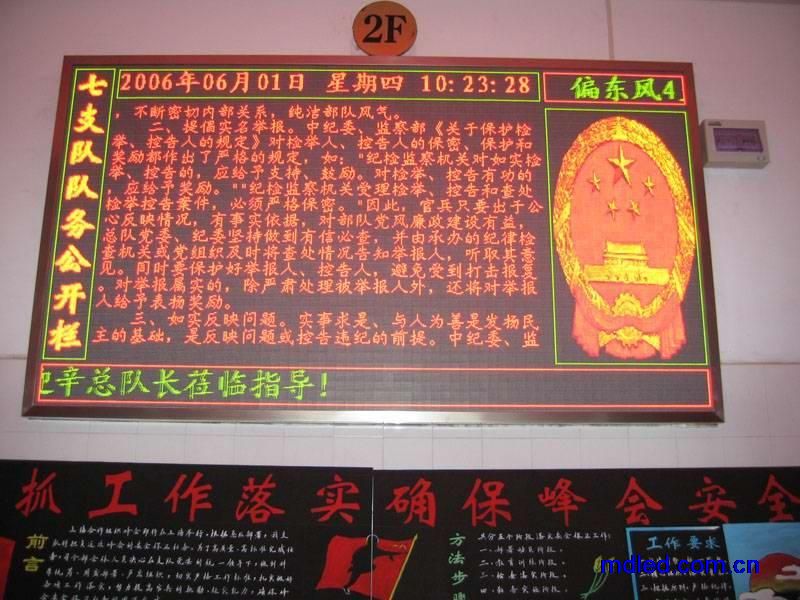 2F
2006年06月01日 星期四 10:23:28
偏东风4
七支队队务公开栏
，不断密切内部关系，纯洁部队风气。
二、提倡实名举报。中纪委、监察部《关于保护检
举、控告人的规定》对检举人、控告人的保密、保护和
奖励都作出了严格的规定，如："纪检监察机关对如实检
举、控告的，应给予支持、鼓励。对检举、控告有功的
，应给予奖励。""纪检监察机关受理检举、控告和查处
检举控告案件，必须严格保密。"因此，官兵只要出于公
心反映情况，有事实依据，对部队党风廉政建设有益，
总队党委、纪委坚持做到有信必查，并由承办的纪律检
查机关或党组织及时将查处情况告知举报人，听取其意
见。同时要保护好举报人、控告人，避免受到打击报复
。对举报属实的，除严肃处理被举报人外，还将对举报
人给予表扬奖励。
三、如实反映问题。实事求是、与人为善是发扬民
主的基础，是反映问题或控告违纪的前提。中纪委、监
迎辛总队长莅临指导！
抓工作落实 确保峰会安全
前言
方法步骤
工作要求
mdled.com.cn